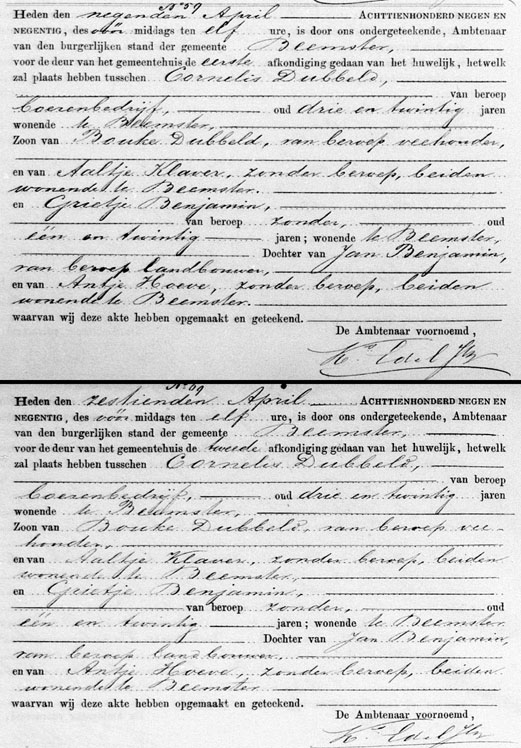 No 59
Heden den negenden April ACHTTIENHONDERD NEGEN EN
NEGENTIG, des vóór middags ten elf ure, is door ons ondergeteekende, Ambtenaar
van den burgerlijken stand der gemeente Beemster,
voor de deur van het gemeentehuis de eerste afkondiging gedaan van het huwelijk, hetwelk
zal plaats hebben tusschen Cornelis Dubbeld,
van beroep
boerenbedrijf, oud drie en twintig jaren
wonende te Beemster,
Zoon van Bouke Dubbeld, van beroep veehouder,
en van Aaltje Klaver, zonder beroep, beiden
wonende te Beemster.
en Grietje Benjamin,
van beroep zonder, oud
één en twintig jaren; wonende te Beemster,
Dochter van Jan Benjamin,
van beroep landbouwer,
en van Antje Hoeve, zonder beroep, beiden
wonende te Beemster.
waarvan wij deze akte hebben opgemaakt en geteekend.
De Ambtenaar voornoemd,
Heden den zestienden April ACHTTIENHONDERD NEGEN EN
NEGENTIG, des vóór middags ten elf ure, is door ons ondergeteekende, Ambtenaar
van den burgerlijken stand der gemeente Beemster,
voor de deur van het gemeentehuis de tweede afkondiging gedaan van het huwelijk, hetwelk
zal plaats hebben tusschen Cornelis Dubbeld,
van beroep
boerenbedrijf, oud drie en twintig jaren
wonende te Beemster,
Zoon van Bouke Dubbeld, van beroep vee-
houder,
en van Aaltje Klaver, zonder beroep, beiden
wonende te Beemster,
en Grietje Benjamin,
van beroep zonder, oud
één en twintig jaren; wonende te Beemster
Dochter van Jan Benjamin,
van beroep landbouwer,
en van Antje Hoeve, zonder beroep, beiden
wonende te Beemster
waarvan wij deze akte hebben opgemaakt en geteekend.
De Ambtenaar voornoemd,